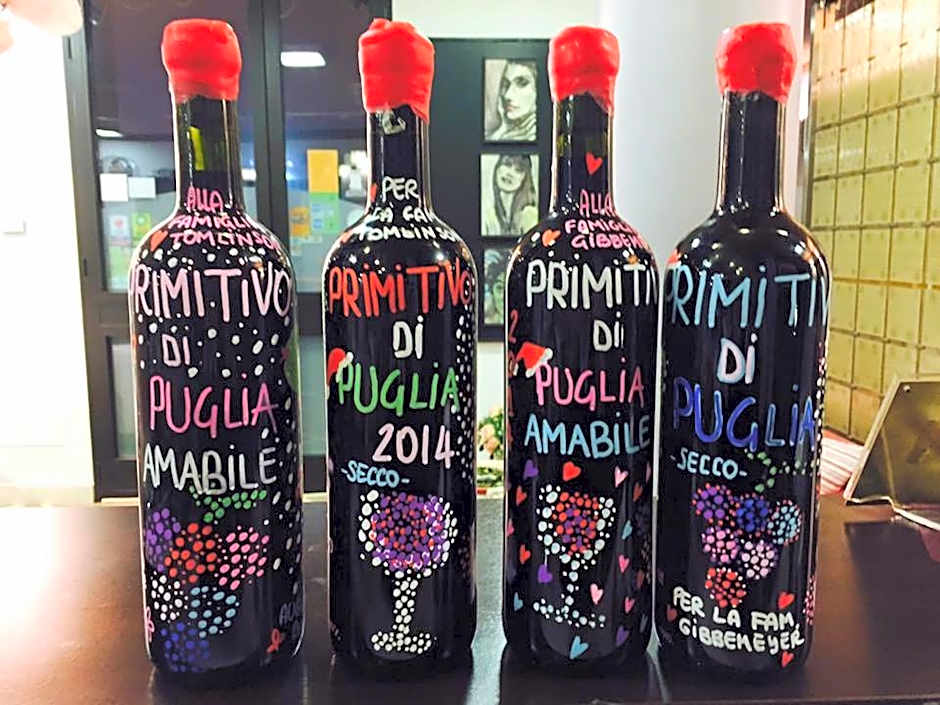 ALLA
FAMIGLI
TOMLINSO
PRIMITIVO
DI
PUGLIA
AMABILE
PER
LA FAM
TOMLINSO
PRIMITIVO
DI
PUGLIA
2014
-SECCO-
ALLA
FAMIGLI
GIBBEME
PRIMITIV
DI
PUGLIA
AMABILE
PRIMITIV
DI
PUGLIA
-SECCO-
PER LA FAM.
GIBBEMEYER